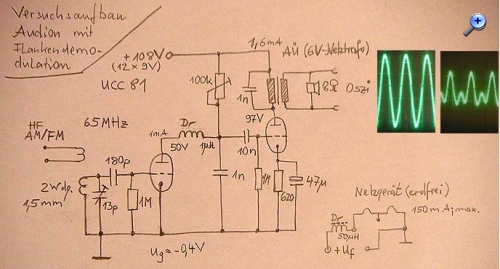 Versuchsaufbau
Audion mit
Flankendemo-
dulation
+108V
(12 x 9V)
UCC 81
1,6mA
AÜ (6V-Netztrafo)
100k
1n
8Ω
Oszi
HF
AM/FM
65MHz
1mA
Dr
50V
1µH
97V
10n
180p
2Wdg.
1,5mm
13p
1M
1n
1M
620
47µ
Ug≈-0,4V
Netzgerät (erdfrei)
150mA max.
Dr
50µH
+Uf